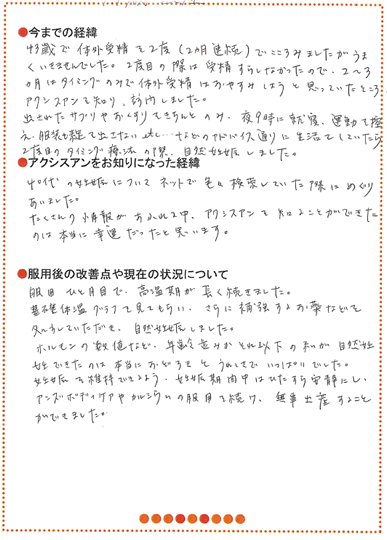 ●今までの経緯
43歳で体外受精を2度(2ヵ月連続)でこころみましたがうま
くいきませんでした。2度目の際は受精すらしなかったので、2〜3
ヵ月はタイミングのみで体外受精はおやすみしようと思っていたところ
アクシスアンを知り、訪問しました。
出されたサプリやおくすりをきちんとのみ、夜9時に就寝、運動を控
え、服装も 出さない etc…などのアドバイス通りに生活していたら
2度目のタイミング療法の際、自然妊娠しました。
●アクシスアンをお知りになった経緯
40代の妊娠についてネットで色々検索していた際にめぐり
あいました。
たくさんの情報があふれる中、アクシスアンを知ることができた
のは本当に幸運だったと思います。
●服用後の改善点や現在の状況について
服用ひと月目で、高温期が長く続きました。
基礎体温グラフを見てもらい、さらに補強するお薬などを
処方していただき、自然妊娠しました。
ホルモンの数値など、年齢並みかそれ以下の私が自然妊
娠できたのは本当におどろきとうれしさでいっぱいでした。
妊娠を維持できるよう、妊娠期間中はひたすら安静にし、
アンズボディケアや の服用を続け、無事出産すること
ができました。